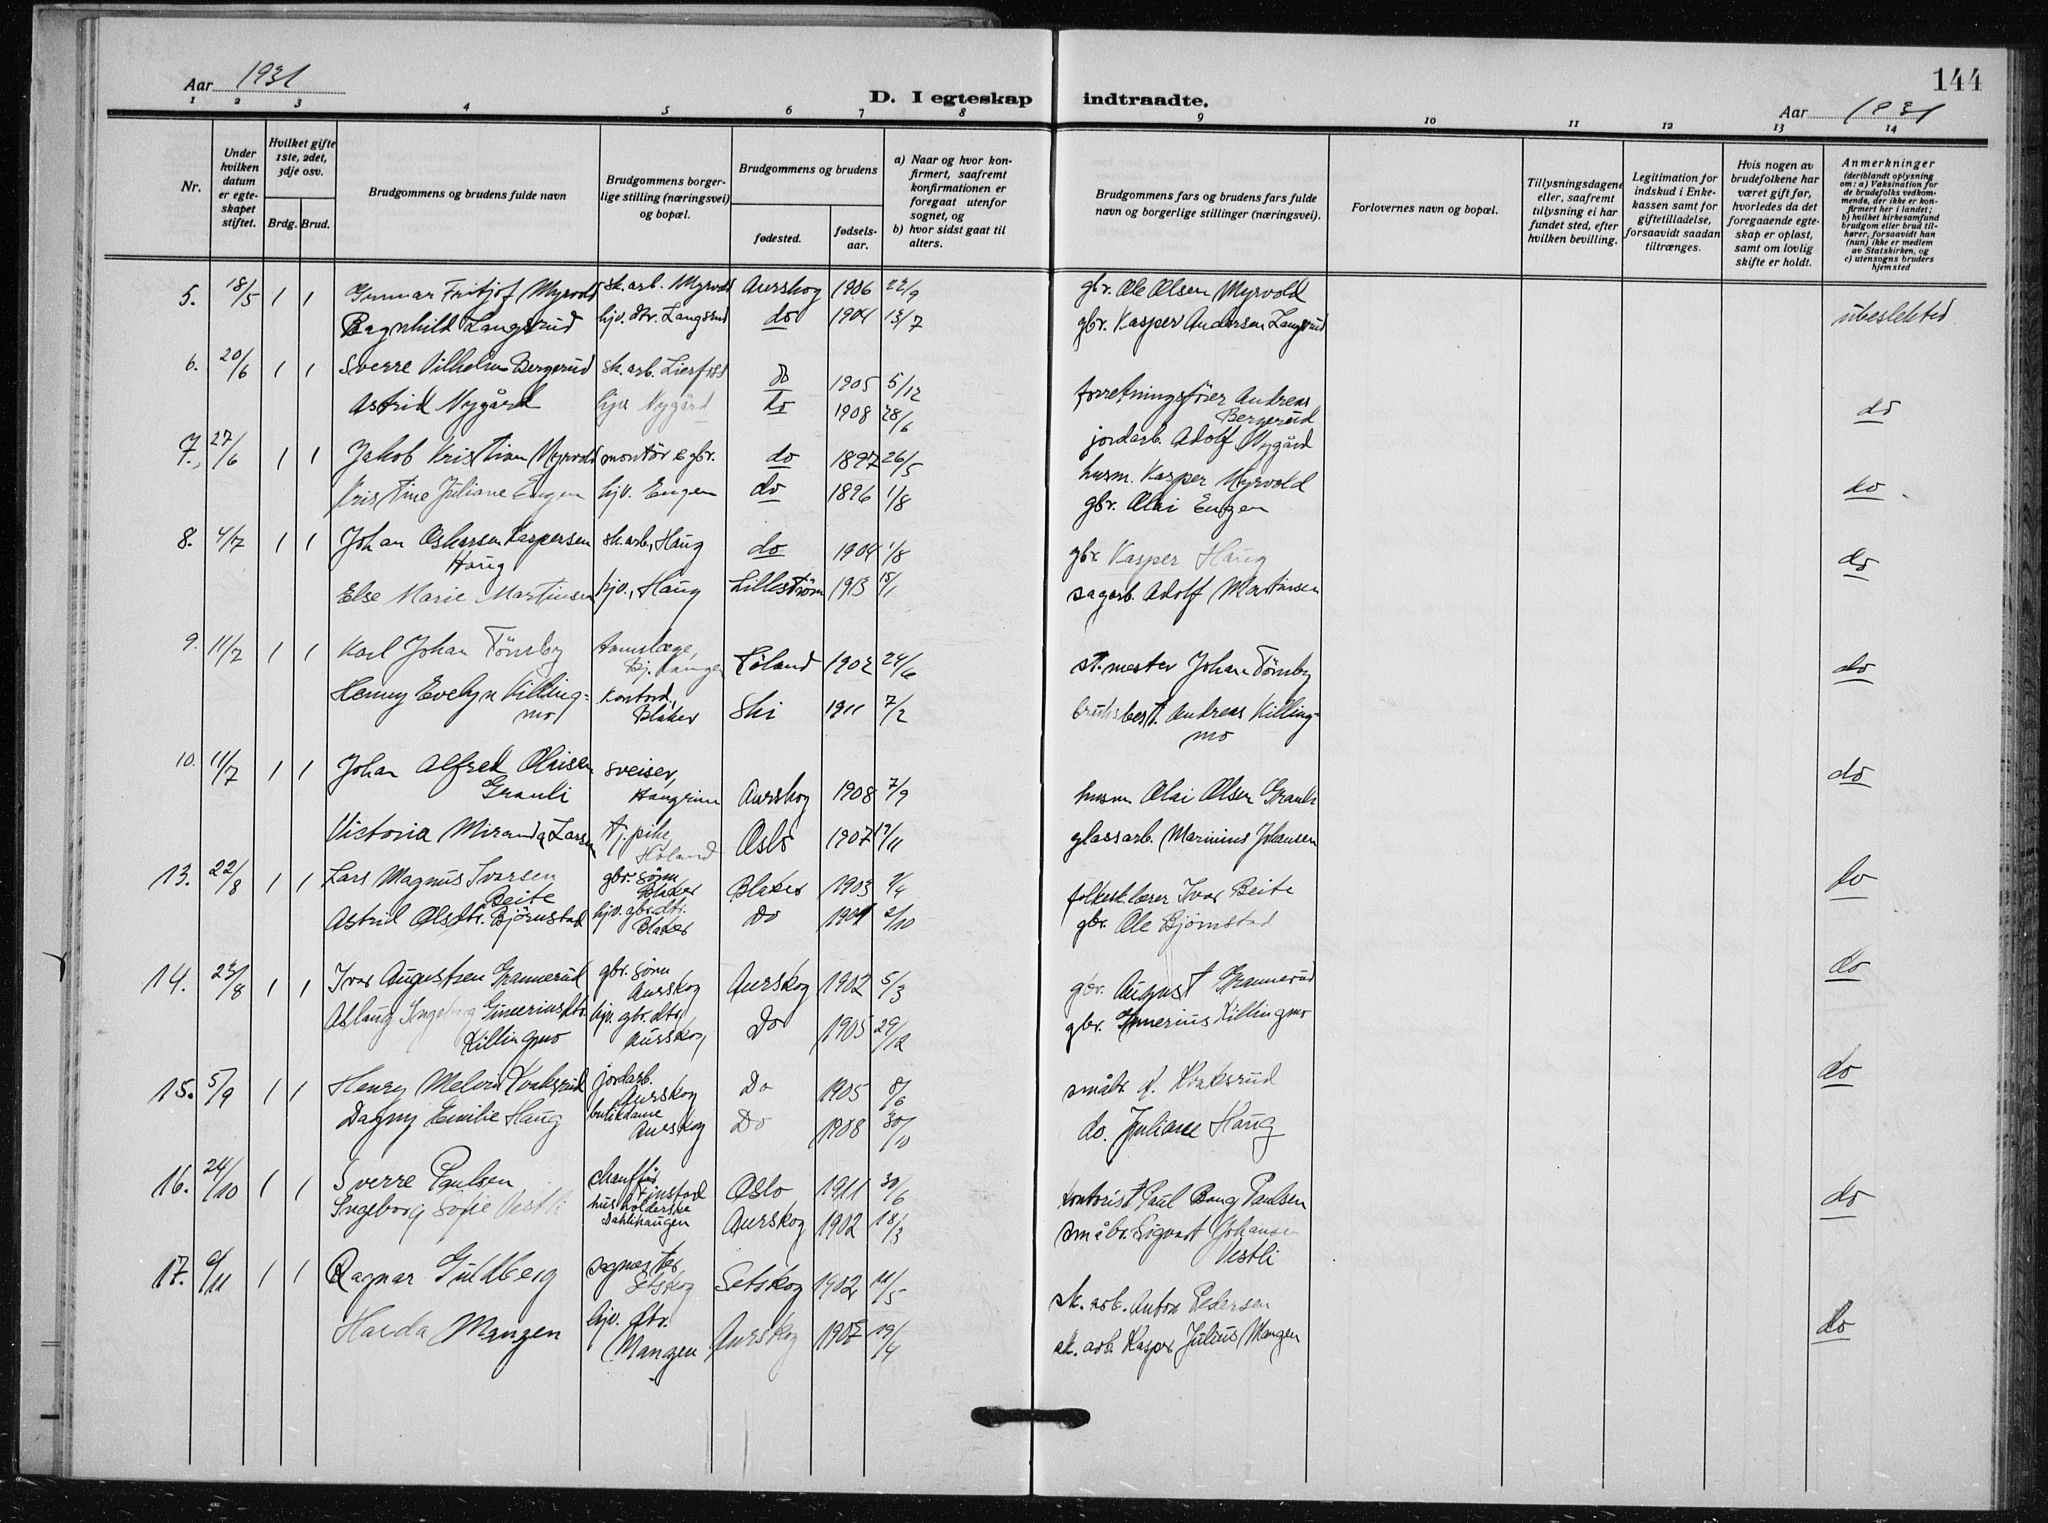 144
Aar 1931
D. I egteskap indtraadte.
Aar 1931
1 2 3 4 5 6 7 8 9 10 11 12 13 14
Nr.
Under hvilken datum er egteskapet stiftet.
Hvilket gifte 1ste, 2det, 3dje osv.
Brdg. Brud.
Brudgommens og brudens fulde navn
Brudgommens borgerlige stilling (næringsvei) og bopæl.
Brudgommens og brudens
fødested.
fødselsaar.
a) Naar og hvor konfirmert, saafremt konfirmationen er foregaat utenfor sognet, og
b) hvor sidst gaat til alters.
Brudgommens fars og brudens fars fulde navn og borgerlige stillinger (næringsvei).
Forlovernes navn og bopæl.
Tillysningsdagene eller, saafremt tillysning ei har fundet sted, efter hvilken bevilling.
Legitimation for indskud i Enkekassen samt for giftetilladelse, forsaavidt saadan tiltrænges.
Hvis nogen av brudefolkene har været gift før, hvorledes da det foregaaende egteskap er opløst, samt om lovlig skifte er holdt.
Anmerkninger (deriblandt oplysning om: a) Vaksination for de brudefolks vedkommende, der ikke er konfirmert her i landet; b) hvilket kirkesamfund brudgom eller brud tilhører, forsaavidt han (hun) ikke er medlem av Statskirken, og c) utensogns bruders hjemsted
5. 18/5 1 1 Gunnar Fritjof Myrvold sk.arb. Myrvold Aurskog 1906 22/9 gbr. Ole Olsen Myrvold
Ragnhild Langsrud hjv. dtr. Langsrud do 1904 13/7 gbr. Kasper Andersen Langsrud ubeslektet
6. 20/6 1 1 Sverre Vilhelm Bergerud sk.arb. Lierfoss do 1905 5/12 forretningsfører Andreas Bergerud
Astrid Nygård hjv Nygård do 1908 28/6 jordarb. Adolf Nygård do
7. 27/6 1 1 Jakob Kristian Myrvold montør & gbr. do 1897 26/5 husm. Kasper Myrvold
Kristine Juliane Engen hjv. Engen do 1896 1/8 gbr. Olai Engen do
8. 4/7 1 1 Johan Oskarsen Kaspersen Haug sk.arb, Haug do 1904 1/8 gbr Kasper Haug do
Else Marie Martinsen hjv., Haug Lillestrøm 1913 15/1 sagarb. Adolf Martinsen
9. 11/7 1 1 Karl Johan Tömby Bj. Høland 1902 24/6 st.mester Johan Tömby do
Henny Evelyn Killingmo kontord., Blaker Ski 1911 7/2 bruksbest. Andreas Killingmo
10. 11/7 1 1 Johan Alfred Olaisen Grauli sveiser, Aurskog 1908 7/9 husm Olai Olsen Grauli do
Victoria Miranda Larsen tj.pike, Høland Oslo 1907 19/11 glassarb. Marinius Johansen
13. 22/8 1 1 Lars Magnus Ivarsen Beite gbr. sønn Blaker Blaker 1903 folkesk.lærer Ivar Beite do
Astrid Olsdtr. Björnstad hjv. gbr.dtr. Blaker Do 1901 2/10 gbr. Ole Björnstad
14. 23/8 1 1 Ivar Augustsen Grannerud gbr. sønn Aurskog Aurskog 1902 5/3 gbr. August Grannerud do
Aslaug Ingeborg Gineriusdtr. Killingmo hjv. gbr.dtr. Aurskog Do 1905 29/12 gbr. Ginerius Killingmo
15. 5/9 1 1 Henry Melvin Kvaksrud jordarb. Aurskog Do 1905 8/6 småbr. Kvaksrud do
Dagny Emilie Haug butikdame Aurskog Do 1908 30/10 do. Juliane Haug
16. 24/10 1 1 Sverre Paulsen chauffør Finstad Oslo 1911 30/6 kontorist Paul Bang Paulsen do
Ingeborg Sofie Vestli husholderske Dahlshaugen Aurskog 1902 18/3 småbr. Sigvart Johansen Vestli
17. 1 1 Ragnar Guldberg sagmester Setskog Setskog 1902 11/5 sk. arb. Anton Pedersen do
Harda Mangen hjv. dtr. Mangen Aurskog 1902 19/4 sk. arb. Kasper Julius Mangen